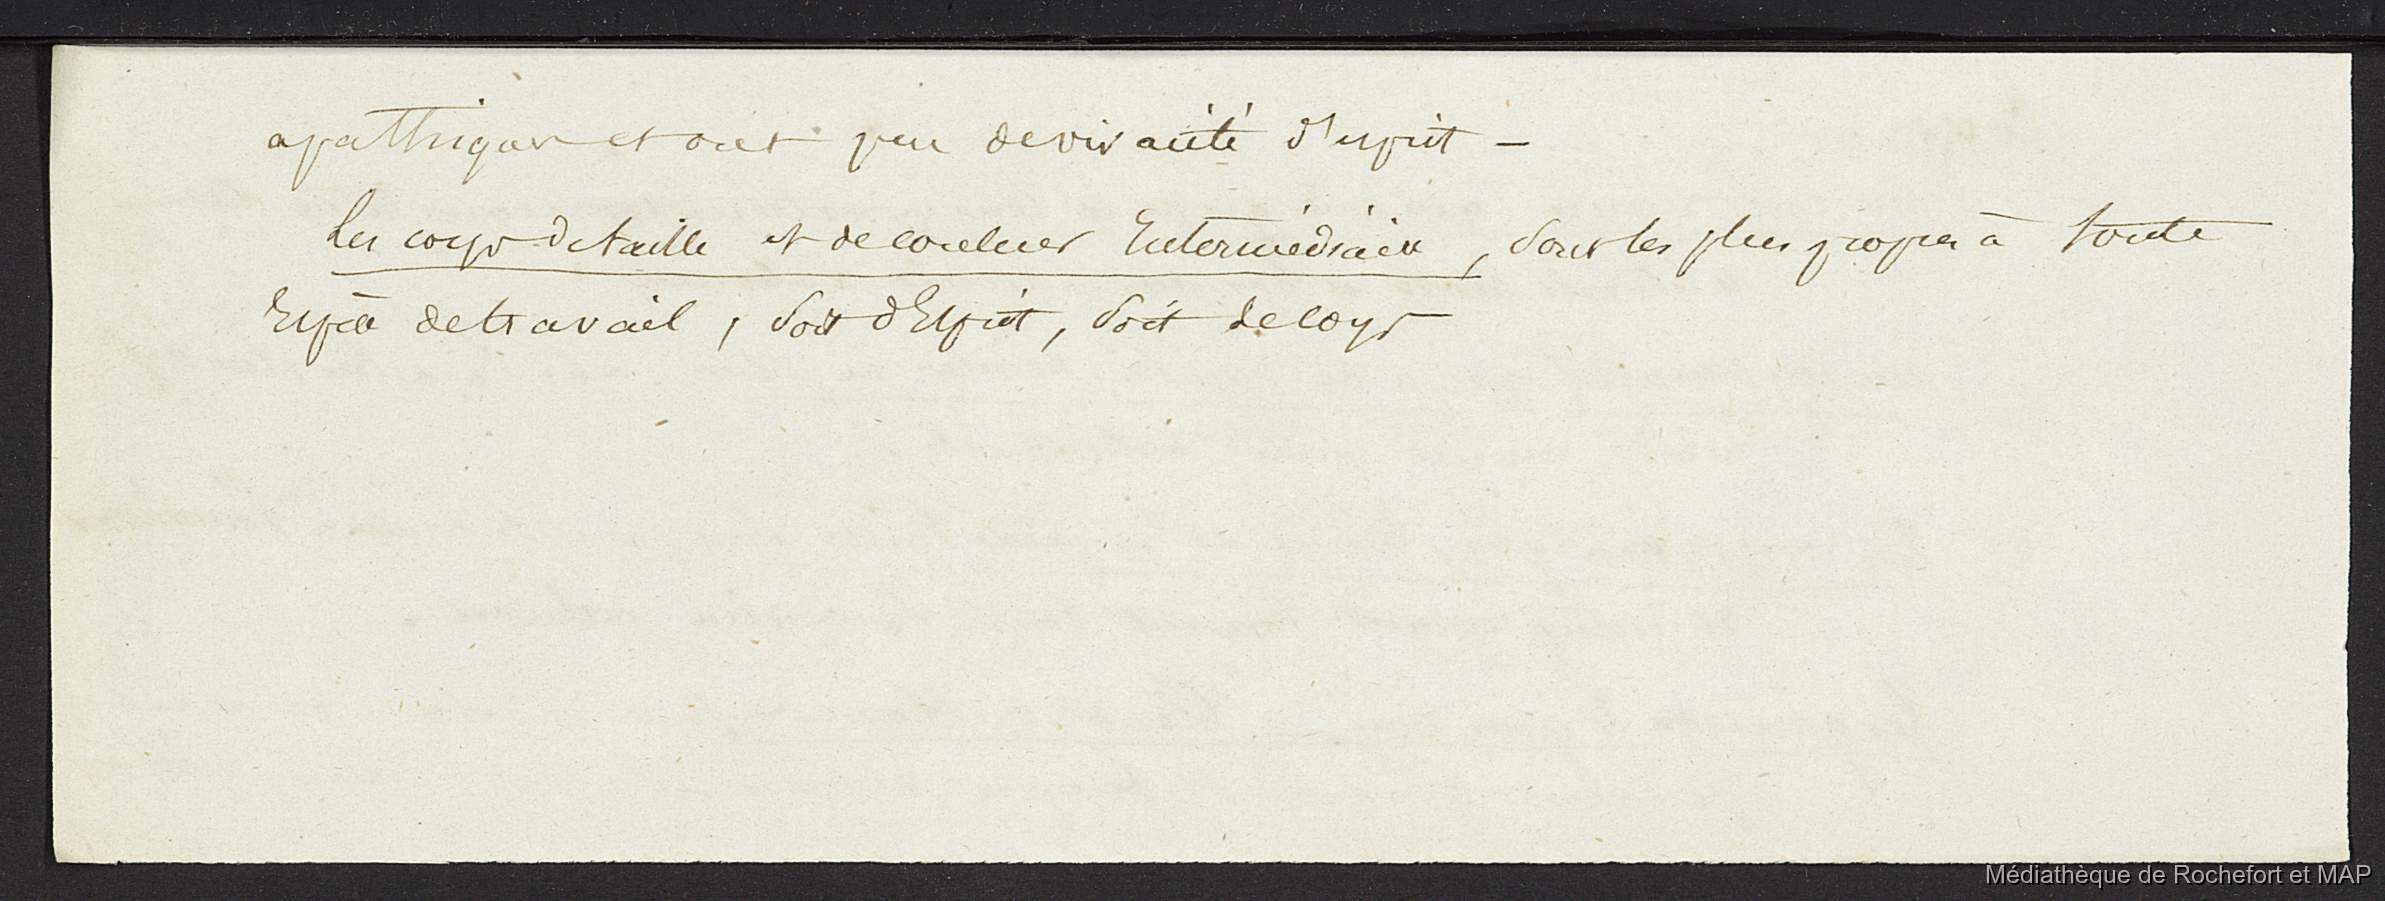 apathiques et ont peu de vivacité d'esprit –
Les corps de taille et de couleur Intermédiaire, sont les plus propres à toute
Espèce de travail, soit d'Esprit, soit de corps
Médiathèque de Rochefort et MAP